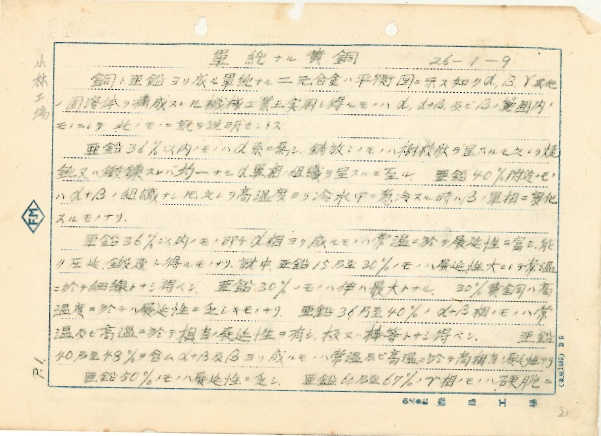 單純ナル黄銅 26-1-9
銅ト亜鉛ヨリ成ル単純ナル二元合金ハ平衡図ニ示ス如クα, β, γ其他ノ
固溶体ヲ構成スルモ機械工業上実用シ得ルモノハα, α+β及ビβノ範囲内ノ
モノニシテ 此ノモノニ就テ説明セントス
亜鉛36%以内ノモノハα系ニ属シ 鋳放シノモノハ樹枝状ヲ呈スルモ之ヲ焼
鈍又ハ鍛錬スレバ均一ナルα單相ノ組織ヲ呈スルニ至ル 亜鉛40%附近ノモノ
ハα+βノ組織ナレ圧之ヲ高温度ヨリ冷水中ニ急冷スル時ハβノ單相ニ変化
スルモノナリ.
亜鉛36%以内ノモノ即チα相ヨリ成ルモノハ常温ニ於テ展延性ニ富ミ, 能
ク圧延, 鍛造シ得ルモノナリ. 就中 亜鉛15乃至30%ノモノハ展延性大ニシテ常温
ニ於テ細線トナシ得ベシ. 亜鉛30%ノモノハ伸ハ最大トナル. 30%黄銅ハ高
温度ニ於テハ展延性ニ乏シキモノナリ. 亜鉛36乃至40%ノα+β相モノハ常
温及ビ高温ニ於テ相当ノ展延性ヲ有シ, 板又ハ棒等トナシ得ベシ. 亜鉛
40乃至48%ヲ含ムα+β及βヨリ成ルモノハ常温及ビ高温ニ於テ尚相当ノ展延性アリ
亜鉛50%ノモノハ展延性ニ乏シ. 亜鉛60乃至67%ノγ相ノモノハ硬脆ニ
小林工場
FM
P.1.
工場